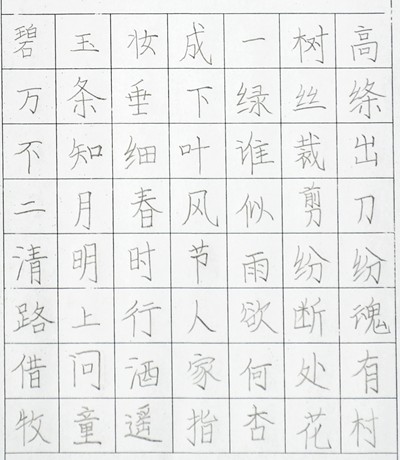 碧玉妆成一树高
万条垂下绿丝绦
不知细叶谁裁出
二月春风似剪刀
清明时节雨纷纷
路上行人欲断魂
借问酒家何处有
牧童遥指杏花村